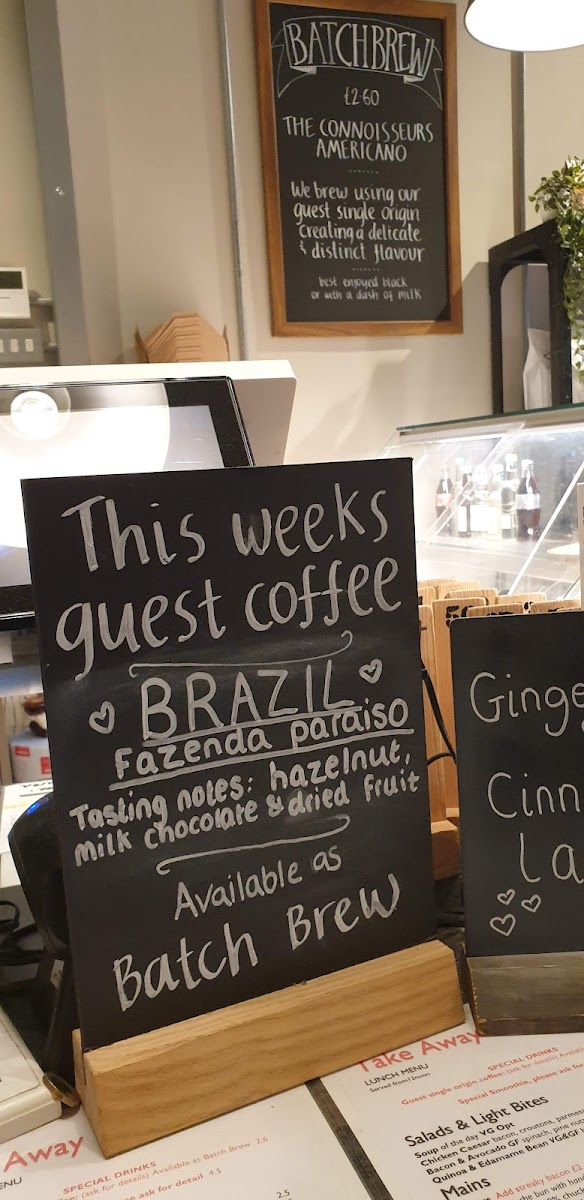 BATCHBREW
£2.60
THE CONNOISSEURS
AMERICANO
We brew using our
guest single origin
creating a delicate
& distinct flavour
best enjoyed black
or with a dash of milk
This weeks
guest coffee
BRAZIL
Fazenda paraiso
Tasting notes: hazelnut,
milk chocolate & dried fruit
Available as
Batch Brew
Ginge
Cinn
La
Take Away
LUNCH MENU
Served from 12noon
SPECIAL DRINKS
Guest single origin coffee: (ask for details)
Special Smoothie, please ask for
Salads & Light Bites
Soup of the day VG Opt
Chicken Caesar bacon, croutons, parmes
Bacon & Avocado GF spinach, pine nut
Quinoa & Edamame Bean VG&GF
Mains
Add streaky bacon £2
Away
ENU
SPECIAL DRINKS
(ask for details) Available as Batch Brew 2.6
ask for detail 4.5
2.5